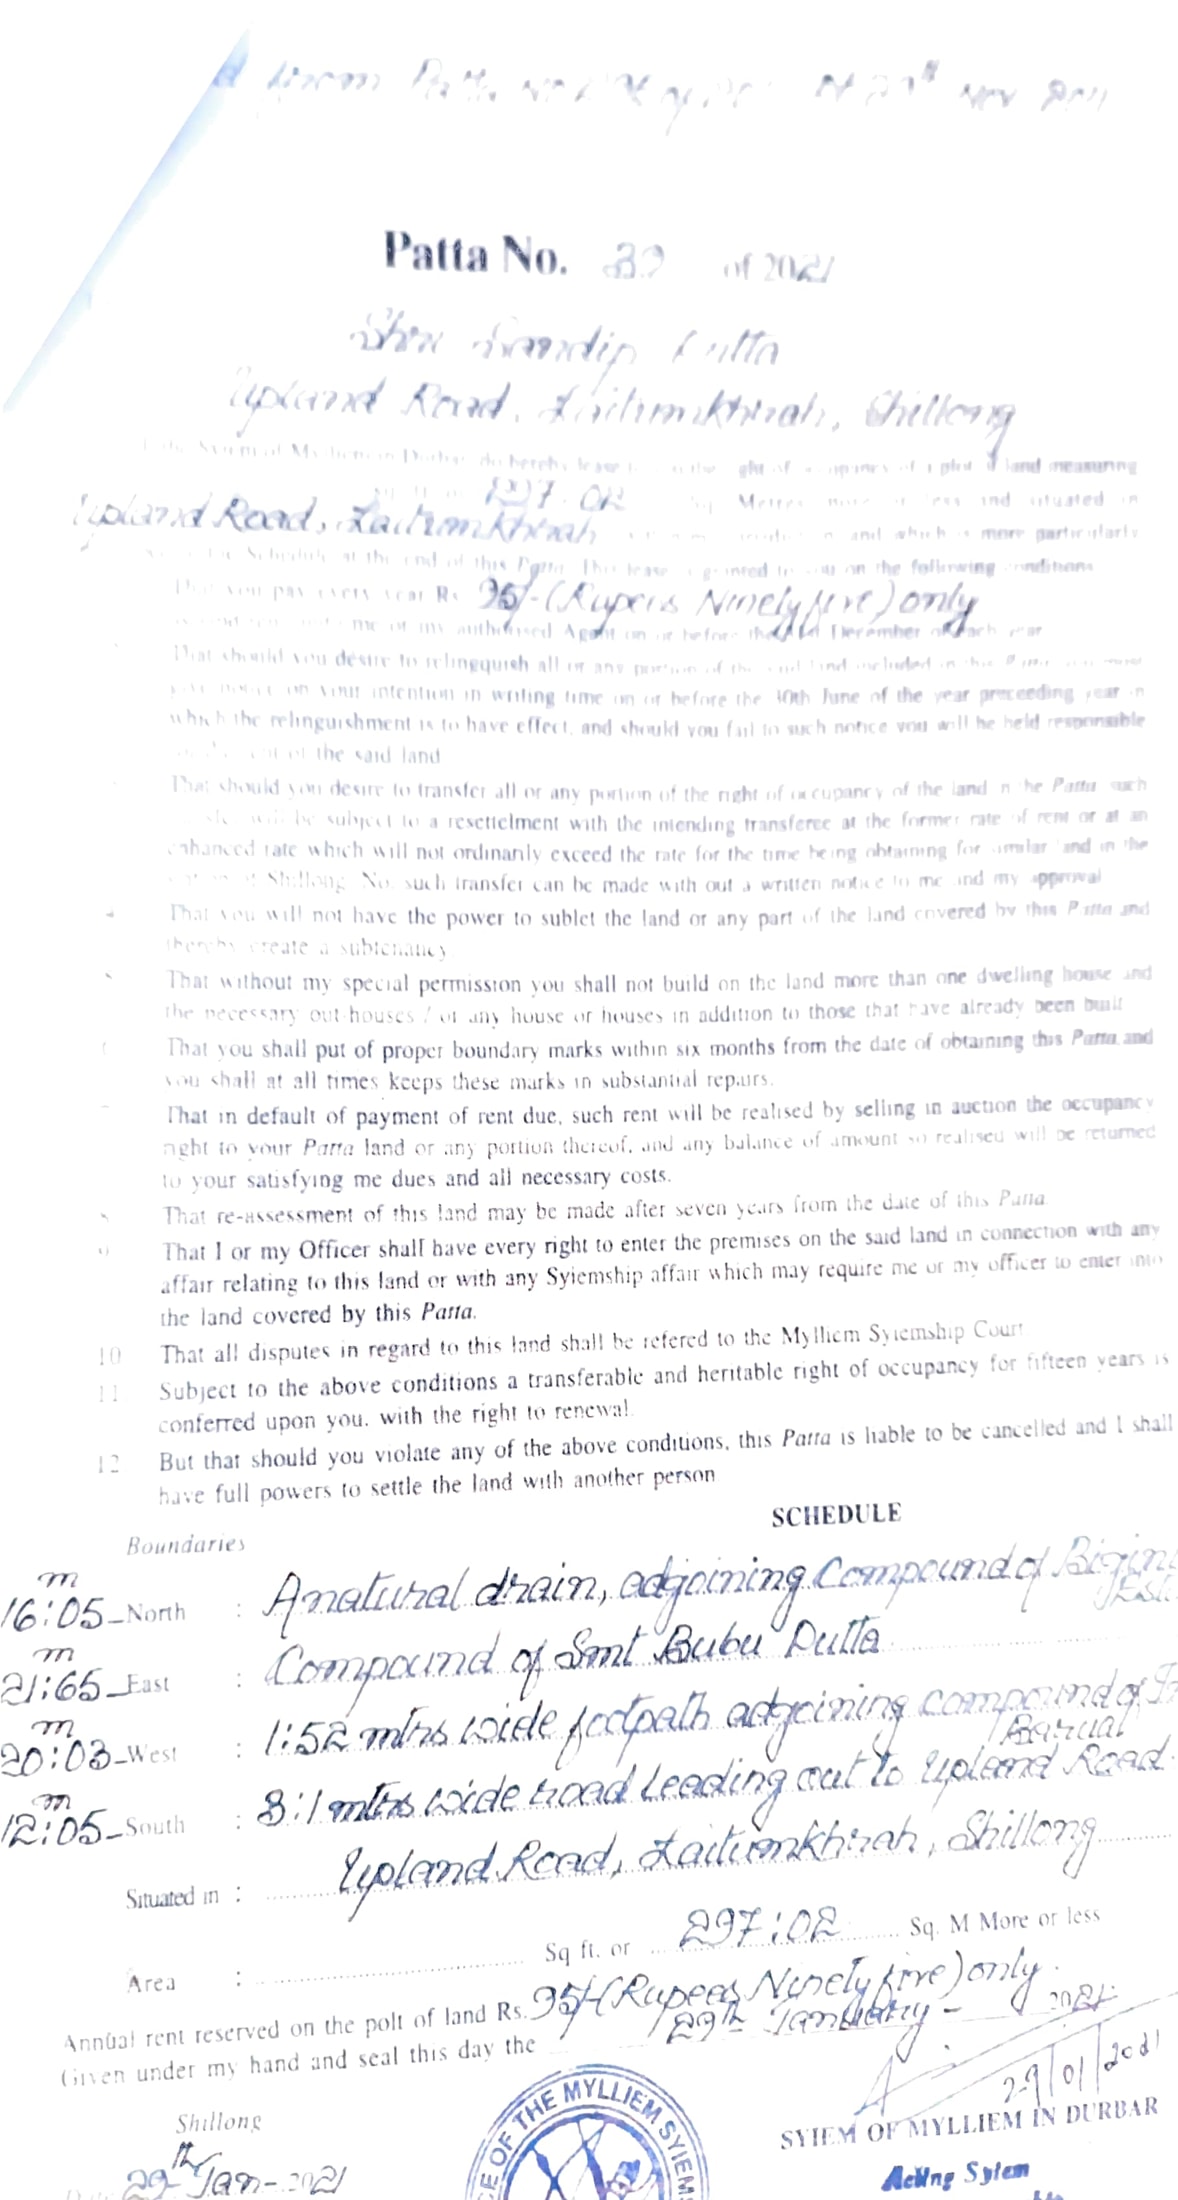 from Patta No of Dt 29th Nov 2011
Patta No. 39 of 2021
Shri Sandip Dutta
Upland Road, Laitumkhrah, Shillong
I the Syiem of Mylliem in Durbar do hereby lease to the right of occupancy of a plot of land measuring
297.02 Sq. Metres more or less and situated in
Upland Road, Laitumkhrah and which is more particularly
Schedule at the end of this Patta. This lease is granted to you on the following conditions
That you pay every year Rs. 95/- (Rupees Ninety five) only
me or my authorised Agent on or before the December of each year
That should you desire to relingquish all or any portion of the said land included in this Patta you must
give notice on your intention in writing time on or before the 30th June of the year preceeding year in
which the relinguishment is to have effect, and should you fail to such notice you will be held responsible
of the said land
That should you desire to transfer all or any portion of the right of occupancy of the land in the Patta such
will be subject to a resettelment with the intending transferee at the former rate of rent or at an
enhanced rate which will not ordinarily exceed the rate for the time being obtaining for similar land in the
Shillong. No, such transfer can be made with out a written notice to me and my approval
4 That you will not have the power to sublet the land or any part of the land covered by this Patta and
thereby create a subtenancy
That without my special permission you shall not build on the land more than one dwelling house and
the necessary out-houses / or any house or houses in addition to those that have already been built
That you shall put of proper boundary marks within six months from the date of obtaining this Patta and
you shall at all times keeps these marks in substantial repairs.
That in default of payment of rent due, such rent will be realised by selling in auction the occupancy
right to your Patta land or any portion thereof, and any balance of amount so realised will be returned
to your satisfying me dues and all necessary costs.
That re-assessment of this land may be made after seven years from the date of this Patta.
9 That I or my Officer shall have every right to enter the premises on the said land in connection with any
affair relating to this land or with any Syiemship affair which may require me or my officer to enter into
the land covered by this Patta.
10 That all disputes in regard to this land shall be refered to the Mylliem Syiemship Court.
11 Subject to the above conditions a transferable and heritable right of occupancy for fifteen years is
conferred upon you. with the right to renewal.
12 But that should you violate any of the above conditions, this Patta is liable to be cancelled and I shall
have full powers to settle the land with another person
SCHEDULE
Boundaries
m
16:05 - North : A natural drain, adjoining Compound of
m
21:65 - East : Compound of Smt Bubu Dutta
m
20:03 - West : 1:52 mtrs wide footpath adjoining compound of
Baruah
m
12:05 - South : 3:1 mtrs wide road leading out to Upland Road.
Situated in : Upland Road, Laitumkhrah, Shillong
Area : Sq ft. or 297:02 Sq. M More or less
Annual rent reserved on the polt of land Rs. 95/- (Rupees Ninety five) only.
Given under my hand and seal this day the 29th January - 2021
29/01/2021
SYIEM OF MYLLIEM IN DURBAR
Acting Syiem
Shillong
Date 29th Jan - 2021
OF THE MYLLIEM SYIEM